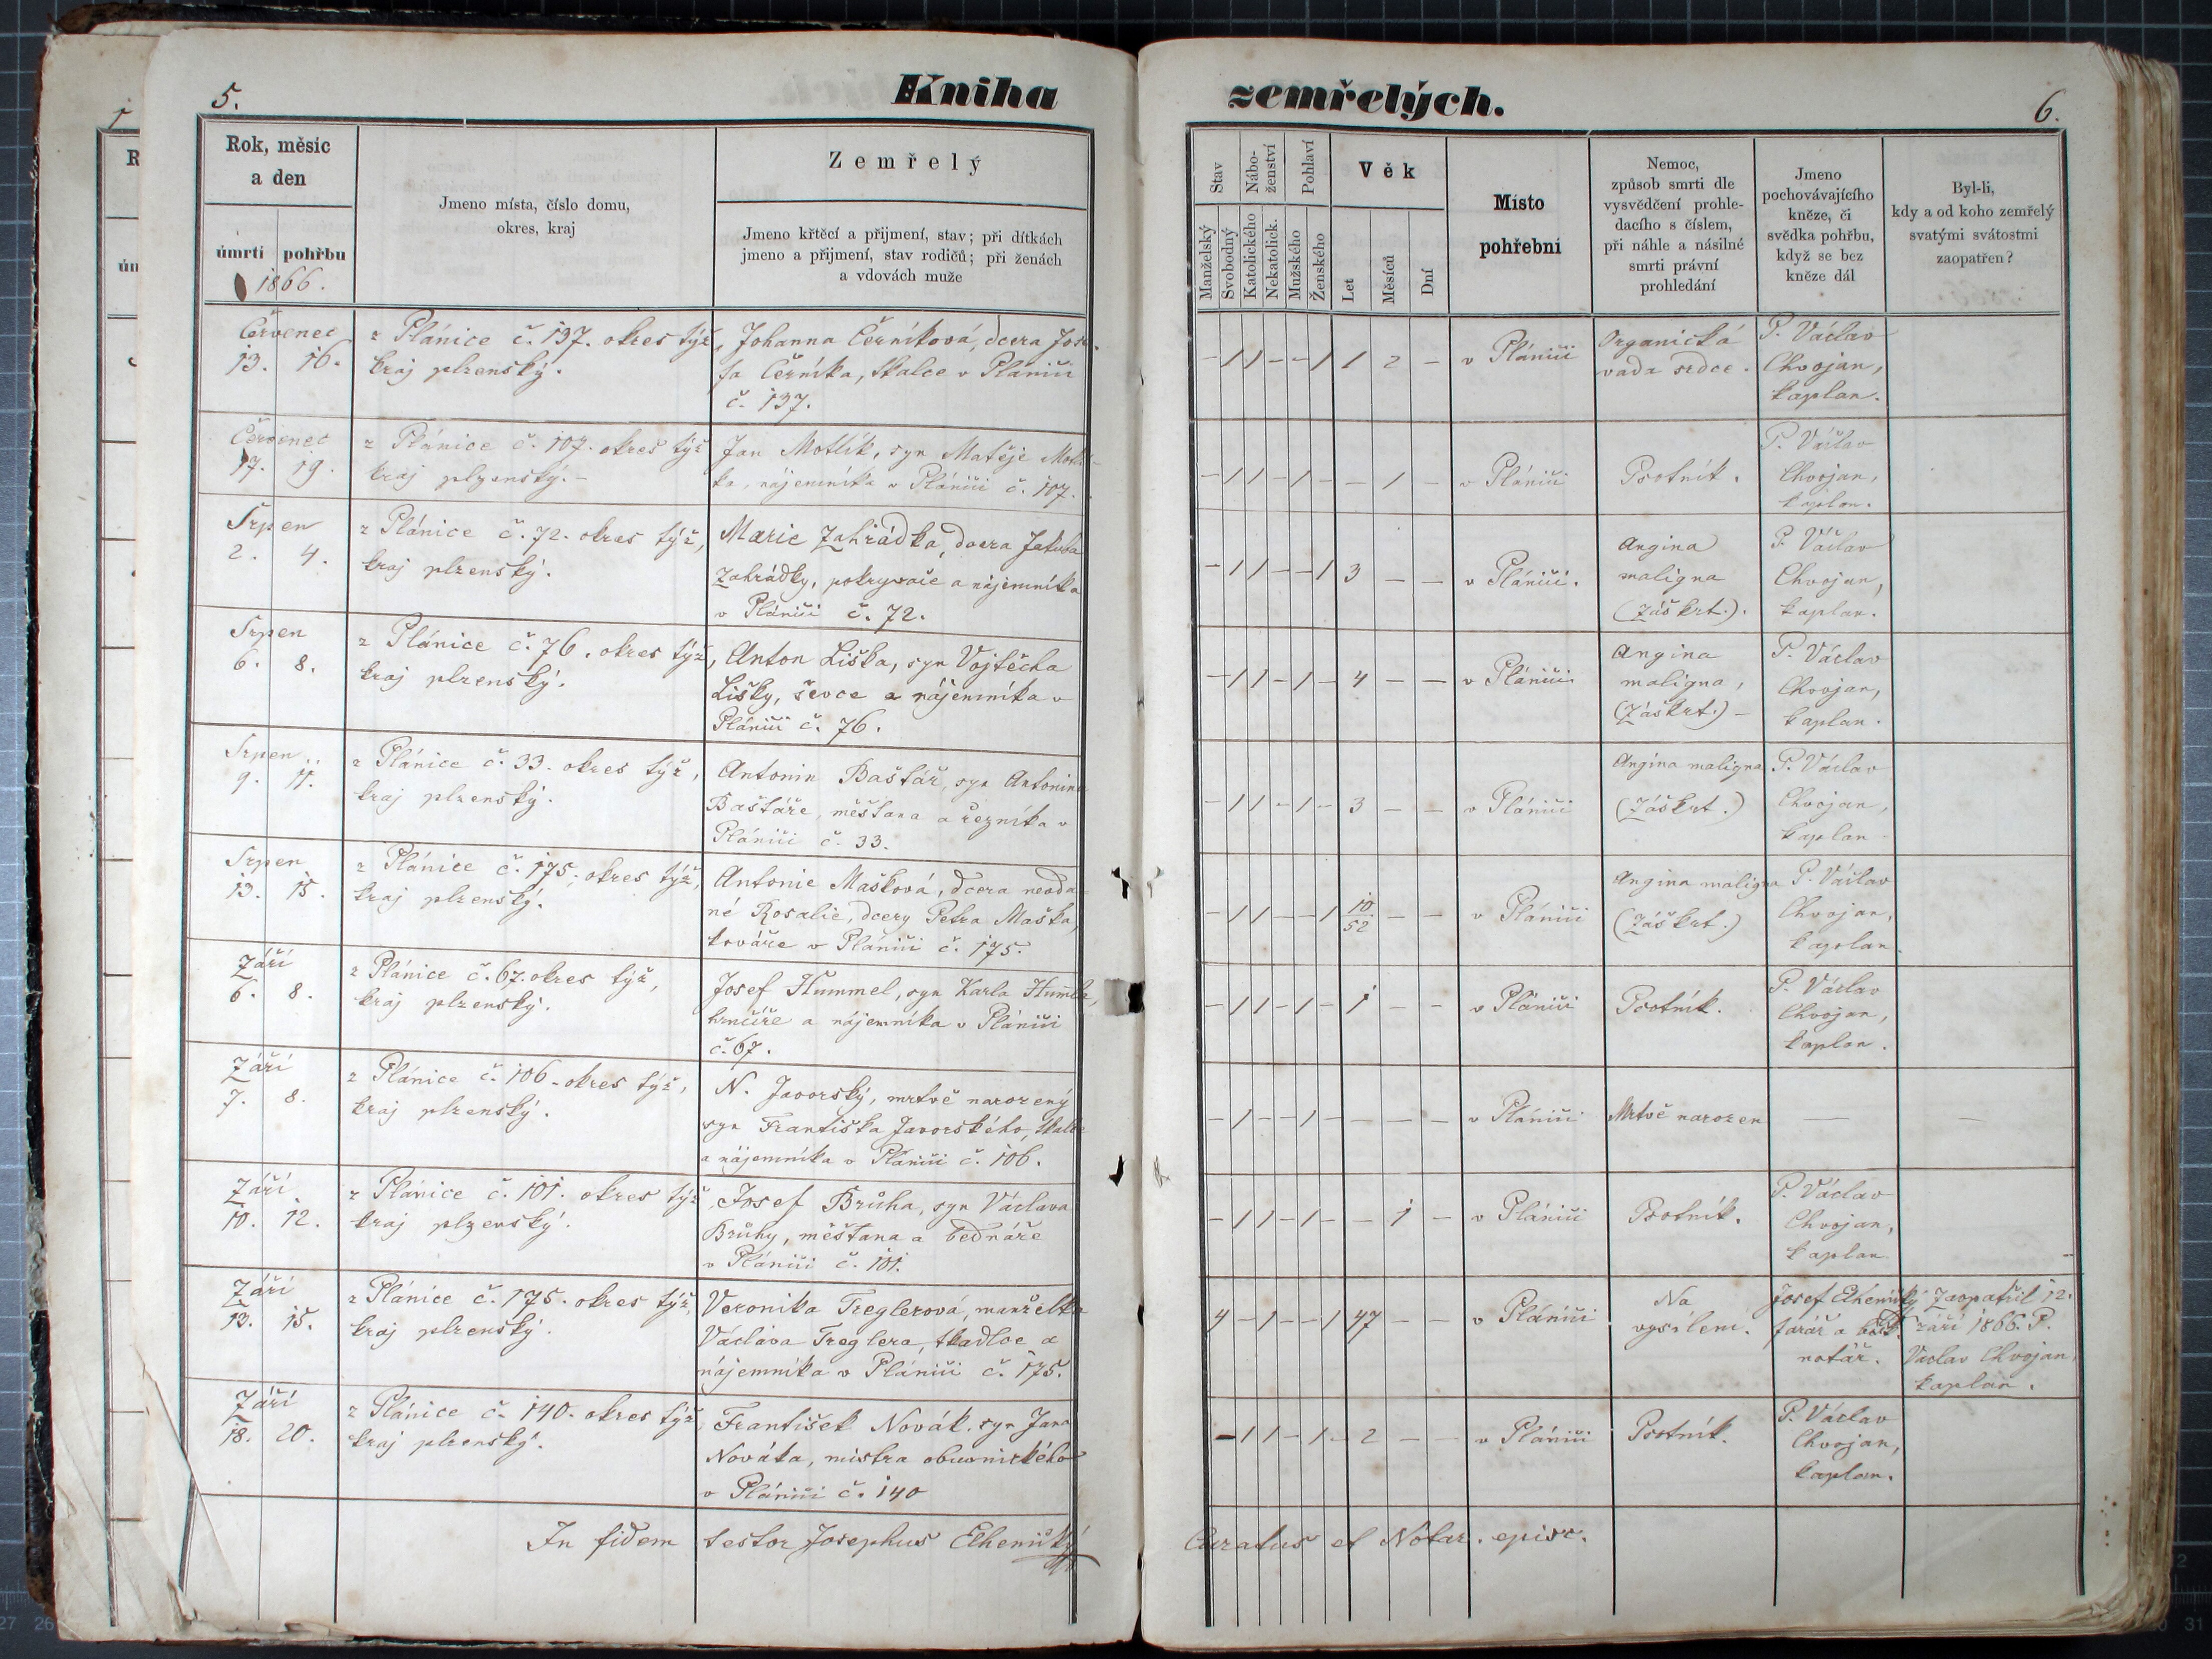 5.
Kniha
zemřelých.
6.
Rok, měsíc
a den
úmrtí
pohřbu
1866.
Jmeno místa, číslo domu,
okres, kraj
Zemřelý
Jmeno křtěcí a přijmení, stav; při dítkách
jmeno a přijmení, stav rodičů; při ženách
a vdovách muže
Stav
Nábo-
ženství
Pohlaví
Věk
Manželský
Svobodný
Katolického
Nekatolick.
Mužského
Ženského
Let
Měsíců
Dní
Místo
pohřební
Nemoc,
způsob smrti dle
vysvědčení prohle-
dacího s číslem,
při náhle a násilné
smrti právní
prohledání
Jmeno
pochovávajícího
kněze, či
svědka pohřbu,
když se bez
kněze dál
Byl-li,
kdy a od koho zemřelý
svatými svátostmi
zaopatřen?
Červenec
13. 16.
z Plánice č. 137. okres týž,
kraj plzenský.
Johanna Černíková, dcera Jose-
fa Černíka, tkalce v Plánici
č. 137.
– 1 1 – – 1 1 2 –
v Plánici
Organická
vada srdce.
P. Václav
Chvojan,
kaplan.
Červenec
17. 19.
z Plánice č. 107. okres týž
kraj plzenský. –
Jan Motlík, syn Matěje Motlí-
ka, nájemníka v Plánici č. 107.
– 1 1 – 1 – – 1 –
v Plánici
Psotník.
P. Václav
Chvojan,
kaplan.
Srpen
2. 4.
z Plánice č. 72. okres týž,
kraj plzenský.
Marie Zahrádka, dcera Jakuba
Zahrádky, pokrývače a nájemníka
v Plánici č. 72.
– 1 1 – – 1 3 – –
v Plánici.
Angina
maligna
(Záškrt.).
P. Václav
Chvojan,
kaplan.
Srpen
6. 8.
z Plánice č. 76. okres týž,
kraj plzenský.
Anton Liška, syn Vojtěcha
Lišky, ševce a nájemníka v
Plánici č. 76.
– 1 1 – 1 – 4 – –
v Plánici
Angina
maligna,
(Záškrt.) –
P. Václav
Chvojan,
kaplan.
Srpen
9. 11.
z Plánice č. 33. okres týž,
kraj plzenský.
Antonin Baštář, syn Antonina
Baštáře, měšťana a řezníka v
Plánici č. 33.
– 1 1 – 1 – 3 – –
v Plánici
Angina maligna
(Záškrt.)
P. Václav
Chvojan,
kaplan
Srpen
13. 15.
z Plánice č. 175. okres týž,
kraj plzenský.
Antonie Mašková, dcera neoda-
né Rosalie, dcery Petra Maška,
kováře v Plánici č. 175.
– 1 1 – – 1 10/52 – –
v Plánici
Angina maligna
(Záškrt.)
P. Václav
Chvojan,
kaplan.
Září
6. 8.
z Plánice č. 67. okres týž,
kraj plzenský.
Josef Hummel, syn Karla Humla,
hrnčíře a nájemníka v Plánici
č. 67.
– 1 1 – 1 – 1 – –
v Plánici
Psotník.
P. Václav
Chvojan,
kaplan.
Září
7. 8.
z Plánice č. 106. okres týž,
kraj plzenský.
N. Javorský, mrtvě narozený
syn Františka Javorského, tkalce
a nájemníka v Plánici č. 106.
– 1 – – 1 – – – –
v Plánici
Mrtvě narozen
—
—
Září
10. 12.
z Plánice č. 101. okres týž
kraj plzenský.
Josef Brůha, syn Václava
Brůhy, měšťana a bednáře
v Plánici č. 101.
– 1 1 – 1 – – 1 –
v Plánici
Psotník.
P. Václav
Chvojan,
kaplan
Září
13. 15.
z Plánice č. 175. okres týž,
kraj plzenský.
Veronika Treglerová, manželka
Václava Treglera, tkadlce a
nájemníka v Plánici č. 175.
4 – 1 – – 1 47 – –
v Plánici
Na
vysílení.
Josef Elhenický
farář a bisk.
notář.
Zaopatřil 12.
září 1866. P.
Václav Chvojan,
kaplan.
Září
18. 20.
z Plánice č. 140. okres týž
kraj plzenský.
František Novák, syn Jana
Nováka, mistra obuvnického
v Plánici č. 140
– 1 1 – 1 – 2 – –
v Plánici
Psotník.
P. Václav
Chvojan,
kaplan.
In fidem testor Josephus Elhenický
Curatus et Notar. episc.